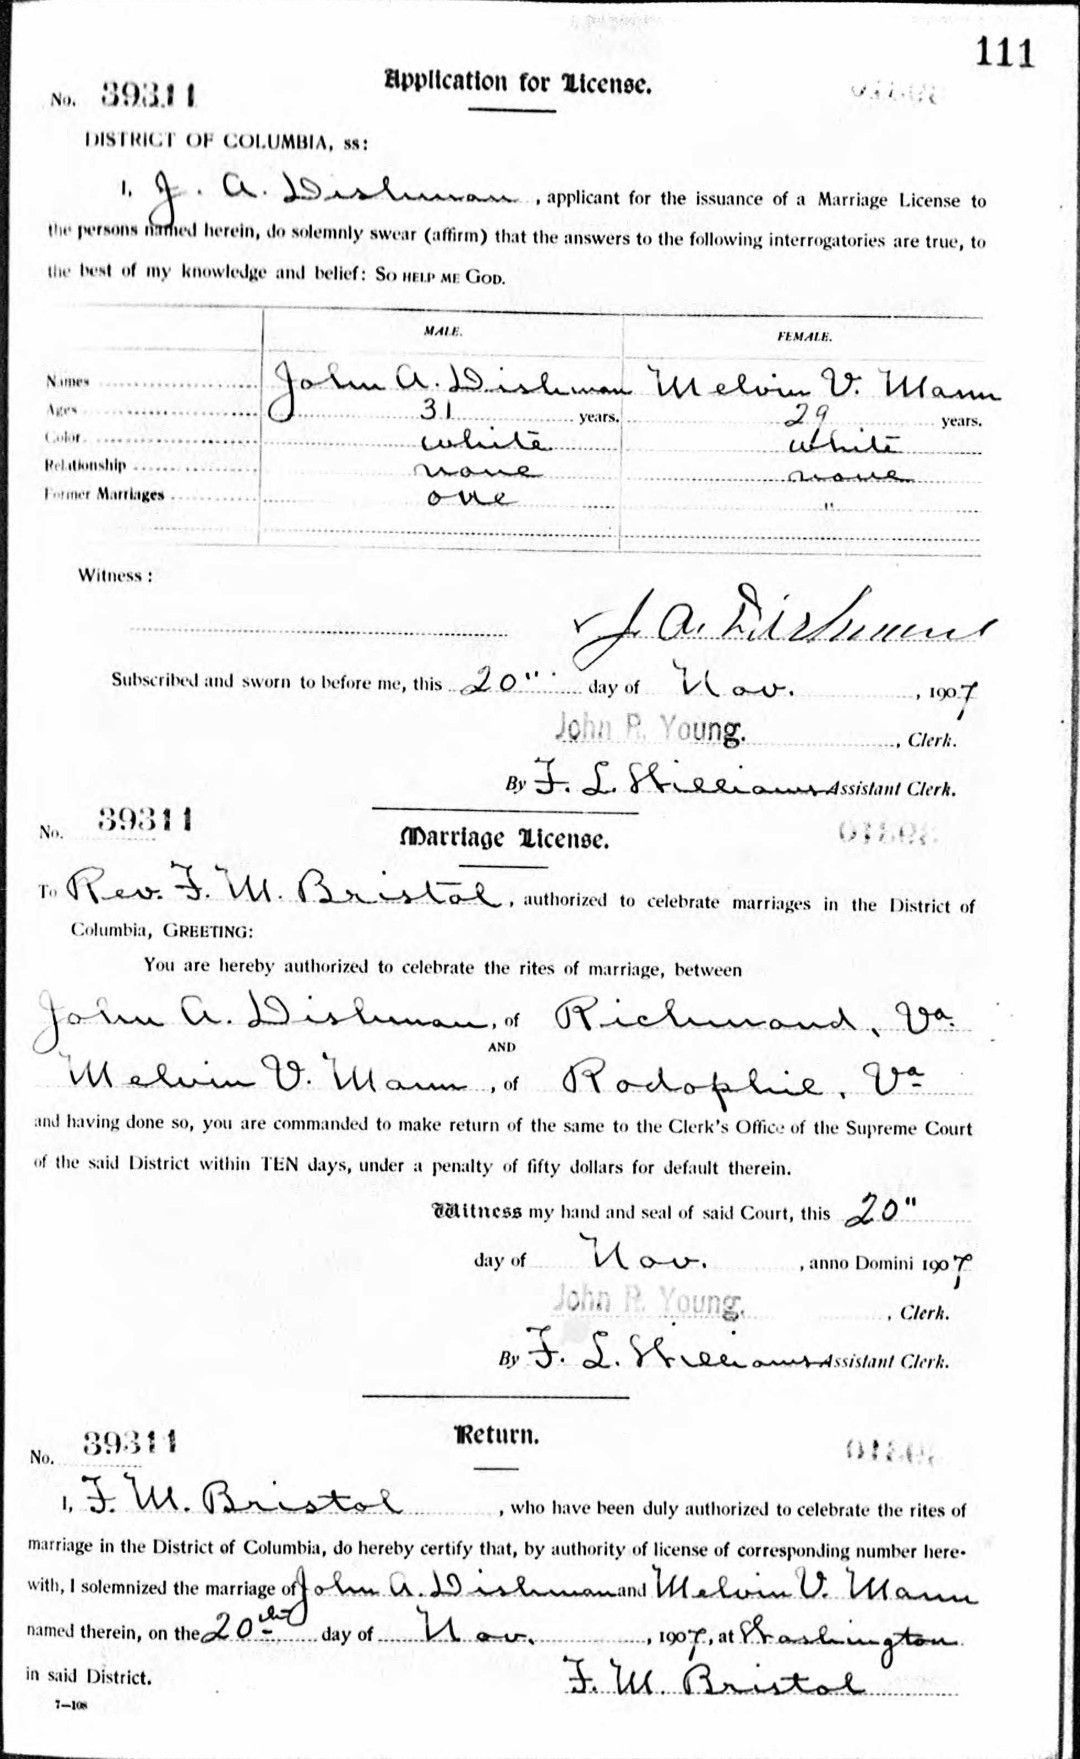 111
No. 39311 Application for License.
DISTRICT OF COLUMBIA, ss:
I, J. A. Dishman, applicant for the issuance of a Marriage License to
the persons named herein, do solemnly swear (affirm) that the answers to the following interrogatories are true, to
the best of my knowledge and belief: SO HELP ME GOD.
MALE. FEMALE.
Names John A. Dishman Melvin V. Mann
Ages 31 years. 29 years.
Color white white
Relationship none none
Former Marriages one "
Witness:
J. A. Dishman
Subscribed and sworn to before me, this 20" day of Nov., 1907
John R. Young. , Clerk.
By F. L. Williams Assistant Clerk.
No. 39311 Marriage License.
To Rev. F. M. Bristol, authorized to celebrate marriages in the District of
Columbia, GREETING:
You are hereby authorized to celebrate the rites of marriage, between
John A. Dishman, of Richmond, Va.
AND
Melvin V. Mann, of Rodophil, Va
and having done so, you are commanded to make return of the same to the Clerk's Office of the Supreme Court
of the said District within TEN days, under a penalty of fifty dollars for default therein.
Witness my hand and seal of said Court, this 20"
day of Nov. , anno Domini 1907
John R. Young. , Clerk.
By F. L. Williams Assistant Clerk.
No. 39311 Return.
I, F. M. Bristol, who have been duly authorized to celebrate the rites of
marriage in the District of Columbia, do hereby certify that, by authority of license of corresponding number here-
with, I solemnized the marriage of John A. Dishman and Melvin V. Mann
named therein, on the 20th day of Nov., 1907, at Washington
in said District. F. M. Bristol
7—108